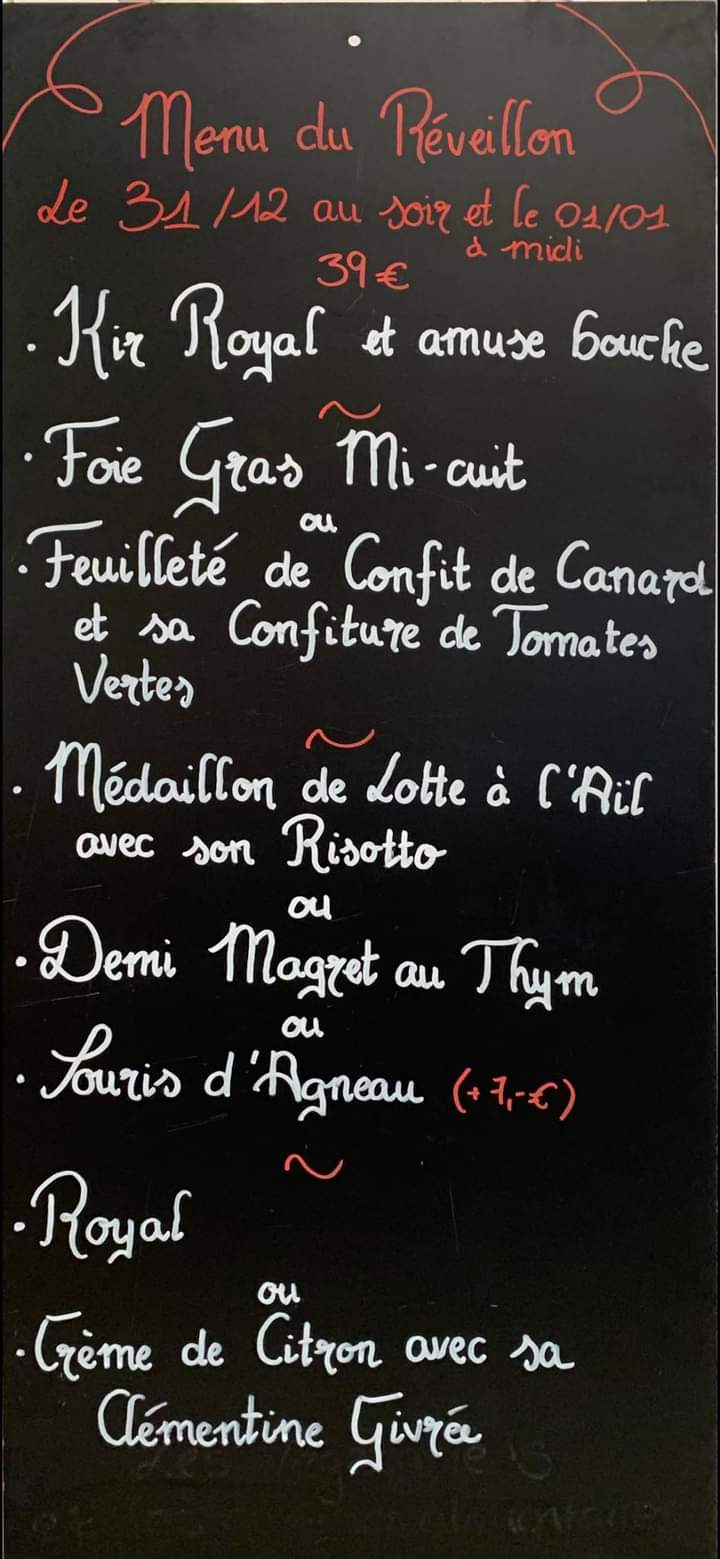 Menu du Réveillon
Le 31/12 au soir et le 01/01
à midi
39€
. Kir Royal et amuse bouche
~
. Foie Gras Mi-cuit
ou
. Feuilleté de Confit de Canard
et sa Confiture de Tomates
Vertes
~
. Médaillon de Lotte à l'Aïl
avec son Risotto
ou
. Demi Magret au Thym
ou
. Souris d'Agneau (+7,-€)
~
. Royal
ou
. Crème de Citron avec sa
Clémentine Givrée